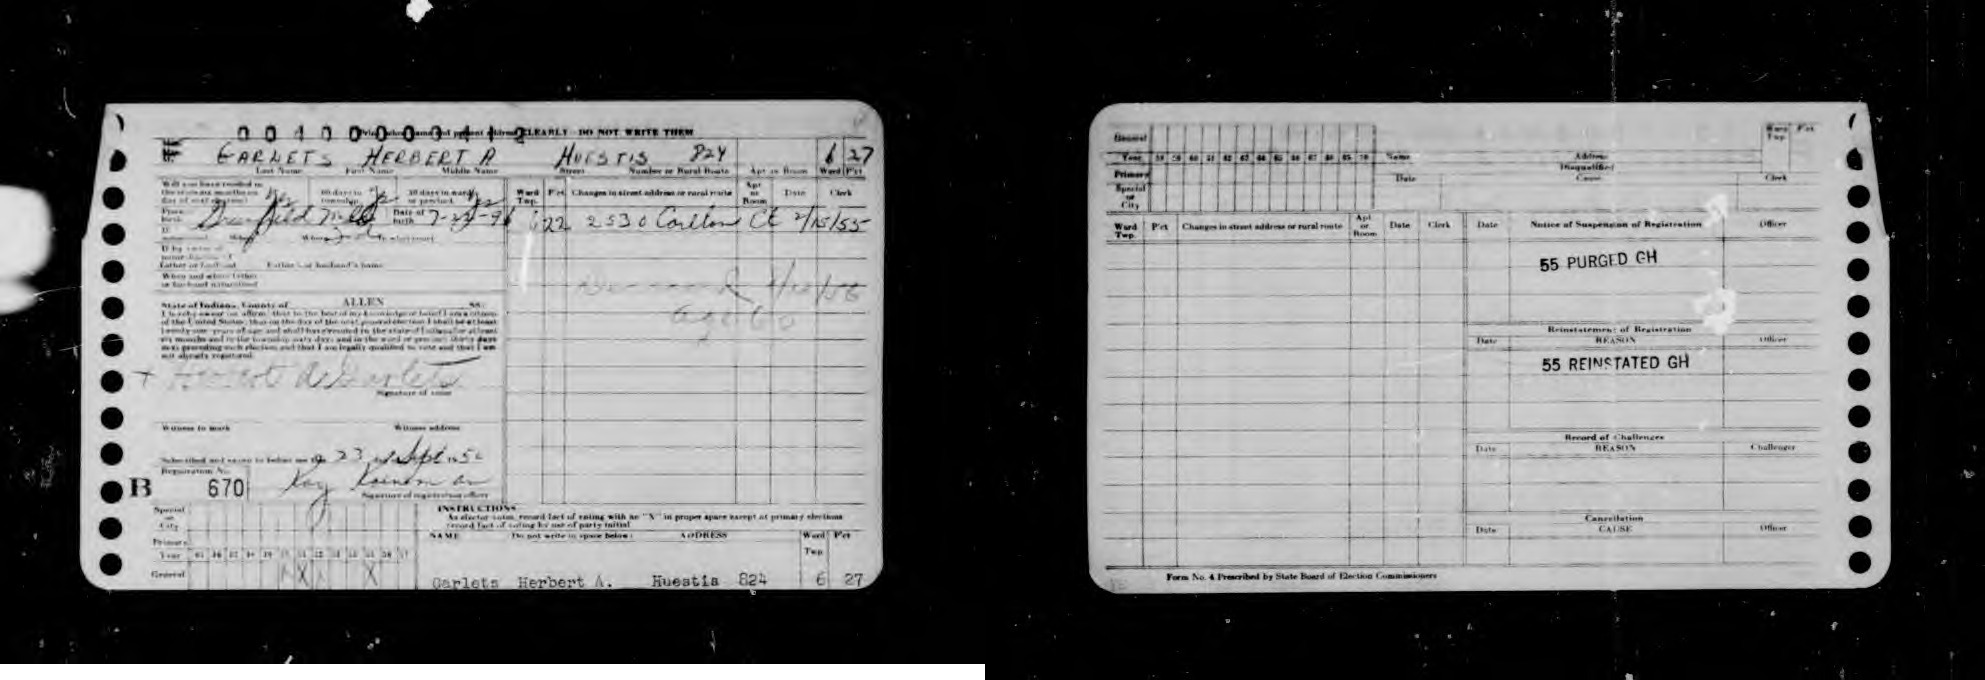 Print below name and present address CLEARLY - DO NOT WRITE THEM
GARLETS HERBERT A HUESTIS 824 6 27
Last Name First Name Middle Name Street Number or Rural Route Apt or Room Ward P'ct
Will you have resided in
the state six months on
day of next election? Yes 60 days in township Yes 30 days in ward or precinct Yes
Ward Twp. P'ct Changes in street address or rural route Apt or Room Date Clerk
Date of birth 7-
6 22 2530 Carlton Ct 2/15/55
Father or husband Father's or husband's name
When and where father
or husband naturalized
age 60
State of Indiana, County of ALLEN SS:
I hereby swear (or affirm) that to the best of my knowledge and belief I am a citizen
of the United States; that on the day of the next general election I shall be at least
twenty-one years of age and shall have resided in the state of Indiana for at least
six months and in the township sixty days and in the ward or precinct thirty days
next preceding such election and that I am legally qualified to vote and that I am
not already registered.
+ Herbert A Garlets
Signature of voter
Witness to mark Witness address
Subscribed and sworn to before me 23 Sept
Registration No.
B 670
Signature of registration officer
INSTRUCTIONS
As elector votes, record fact of voting with an "X" in proper space except at primary elections
record fact of voting by use of party initial
Special
or
City
Primary
Year
General
NAME Do not write in space below: ADDRESS Ward Twp. P'ct
X X
Garlets Herbert A. Huestis 824 6 27
General
Year 58 59 60 61 62 63 64 65 66 67 68 69 70
Primary
Special
or
City
Name Address Ward Twp. P'ct
Disqualified
Date Cause Clerk
Ward Twp. P'ct Changes in street address or rural route Apt or Room Date Clerk
Date Notice of Suspension of Registration Officer
55 PURGED GH
Reinstatement of Registration
Date REASON Officer
55 REINSTATED GH
Record of Challenges
Date REASON Challenger
Cancellation
Date CAUSE Officer
Form No. 4 Prescribed by State Board of Election Commissioners